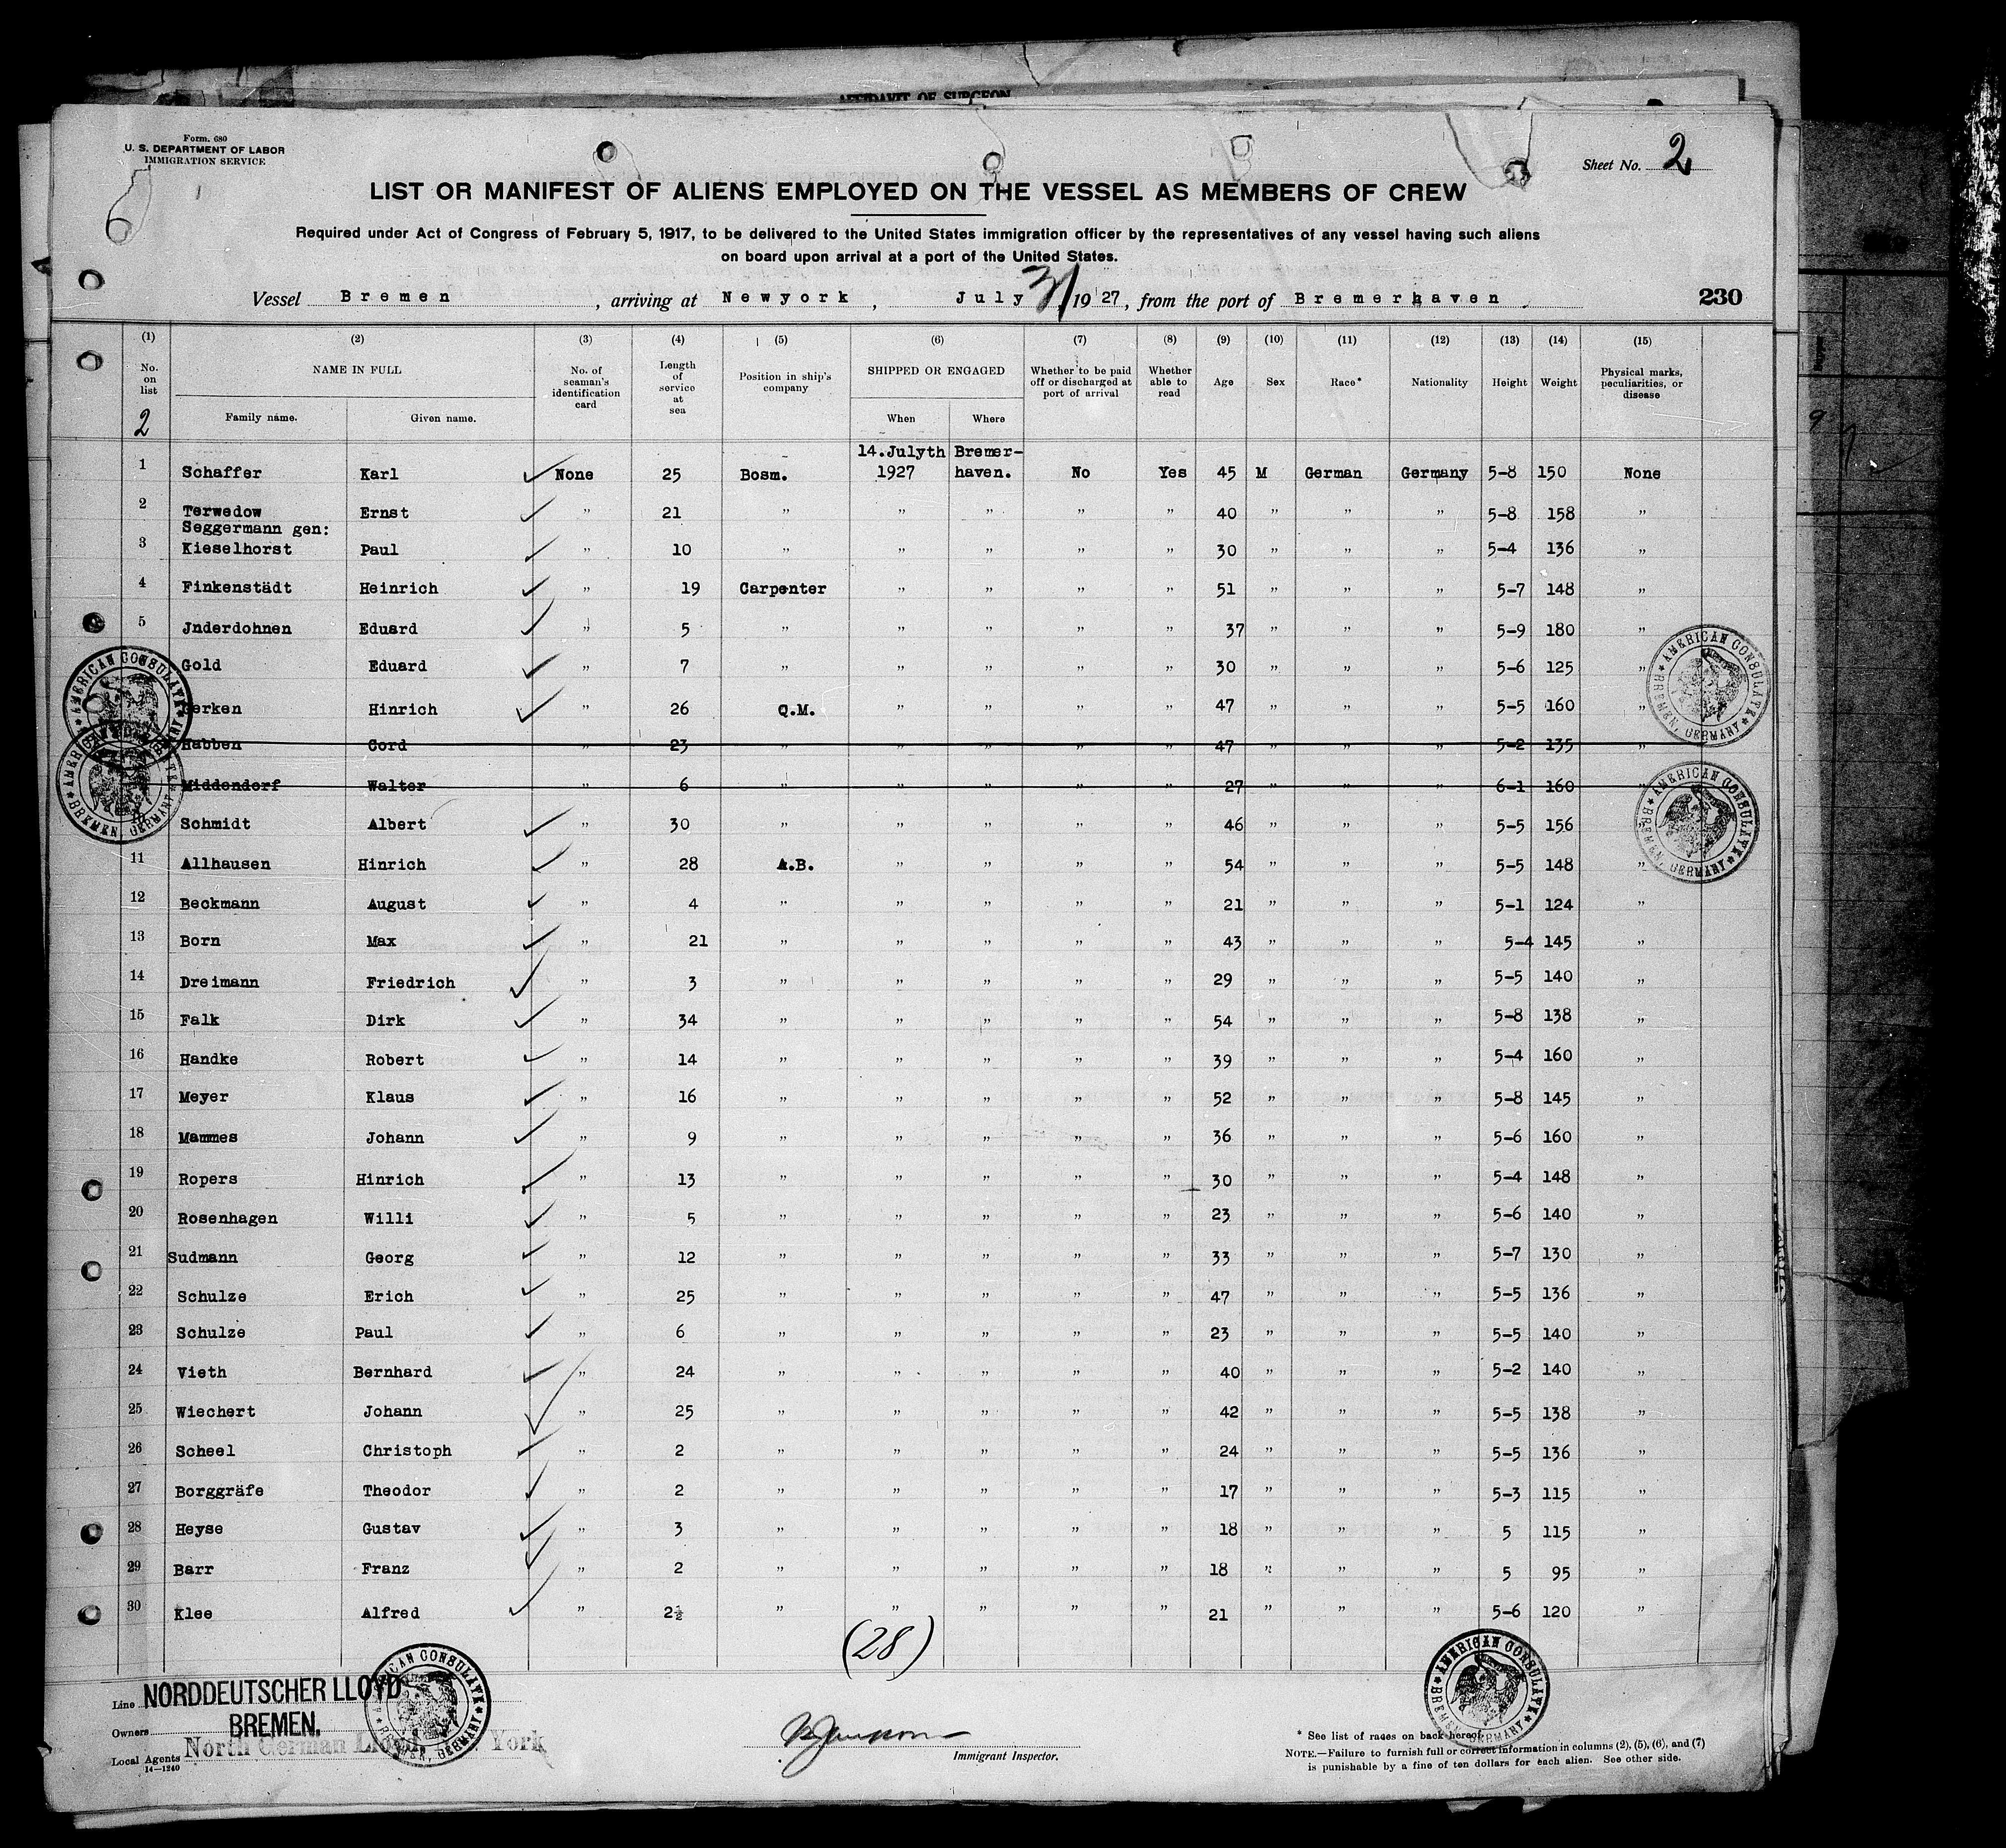 AFFIDAVIT OF SURGEON
Form. 680
U. S. DEPARTMENT OF LABOR
IMMIGRATION SERVICE
Sheet No. 2
LIST OR MANIFEST OF ALIENS EMPLOYED ON THE VESSEL AS MEMBERS OF CREW
Required under Act of Congress of February 5, 1917, to be delivered to the United States immigration officer by the representatives of any vessel having such aliens
on board upon arrival at a port of the United States.
Vessel Bremen, arriving at Newyork, July 31, 1927, from the port of Bremerhaven.
230
(1) (2) (3) (4) (5) (6) (7) (8) (9) (10) (11) (12) (13) (14) (15)
No. on list NAME IN FULL Family name. Given name. No. of seaman's identification card Length of service at sea Position in ship's company SHIPPED OR ENGAGED When Where Whether to be paid off or discharged at port of arrival Whether able to read Age Sex Race* Nationality Height Weight Physical marks, peculiarities, or disease
2
14.Julyth Bremer-
1 Schaffer Karl None 25 Bosm. 1927 haven. No Yes 45 M German Germany 5-8 150 None
2 Terwedow Ernst " 21 " " " " " 40 " " " 5-8 158 "
Seggermann gen:
3 Kieselhorst Paul " 10 " " " " " 30 " " " 5-4 136 "
4 Finkenstädt Heinrich " 19 Carpenter " " " " 51 " " " 5-7 148 "
5 Jnderdohnen Eduard " 5 " " " " " 37 " " " 5-9 180 "
Gold Eduard " 7 " " " " " 30 " " " 5-6 125 "
Gerken Hinrich " 26 Q.M. " " " " 47 " " " 5-5 160 "
Habben Cord " 23 " " " " " 47 " " " 5-2 135 "
Middendorf Walter " 6 " " " " " 27 " " " 6-1 160 "
Schmidt Albert " 30 " " " " " 46 " " " 5-5 156 "
11 Allhausen Hinrich " 28 A.B. " " " " 54 " " " 5-5 148 "
12 Beckmann August " 4 " " " " " 21 " " " 5-1 124 "
13 Born Max " 21 " " " " " 43 " " " 5-4 145 "
14 Dreimann Friedrich " 3 " " " " " 29 " " " 5-5 140 "
15 Falk Dirk " 34 " " " " " 54 " " " 5-8 138 "
16 Handke Robert " 14 " " " " " 39 " " " 5-4 160 "
17 Meyer Klaus " 16 " " " " " 52 " " " 5-8 145 "
18 Mammes Johann " 9 " " " " " 36 " " " 5-6 160 "
19 Ropers Hinrich " 13 " " " " " 30 " " " 5-4 148 "
20 Rosenhagen Willi " 5 " " " " " 23 " " " 5-6 140 "
21 Sudmann Georg " 12 " " " " " 33 " " " 5-7 130 "
22 Schulze Erich " 25 " " " " " 47 " " " 5-5 136 "
23 Schulze Paul " 6 " " " " " 23 " " " 5-5 140 "
24 Vieth Bernhard " 24 " " " " " 40 " " " 5-2 140 "
25 Wiechert Johann " 25 " " " " " 42 " " " 5-5 138 "
26 Scheel Christoph " 2 " " " " " 24 " " " 5-5 136 "
27 Borggräfe Theodor " 2 " " " " " 17 " " " 5-3 115 "
28 Heyse Gustav " 3 " " " " " 18 " " " 5 115 "
29 Barr Franz " 2 " " " " " 18 " " " 5 95 "
30 Klee Alfred " 2½ " " " " " 21 " " " 5-6 120 "
(28)
AMERICAN CONSULATE BREMEN, GERMANY
AMERICAN CONSULATE BREMEN, GERMANY
AMERICAN CONSULATE BREMEN, GERMANY
AMERICAN CONSULATE BREMEN, GERMANY
AMERICAN CONSULATE BREMEN, GERMANY
AMERICAN CONSULATE BREMEN, GERMANY
Line NORDDEUTSCHER LLOYD
Owners BREMEN.
Local Agents North German Lloyd New York
14—1240
Immigrant Inspector.
* See list of races on back hereof.
NOTE.—Failure to furnish full or correct information in columns (2), (5), (6), and (7)
is punishable by a fine of ten dollars for each alien. See other side.